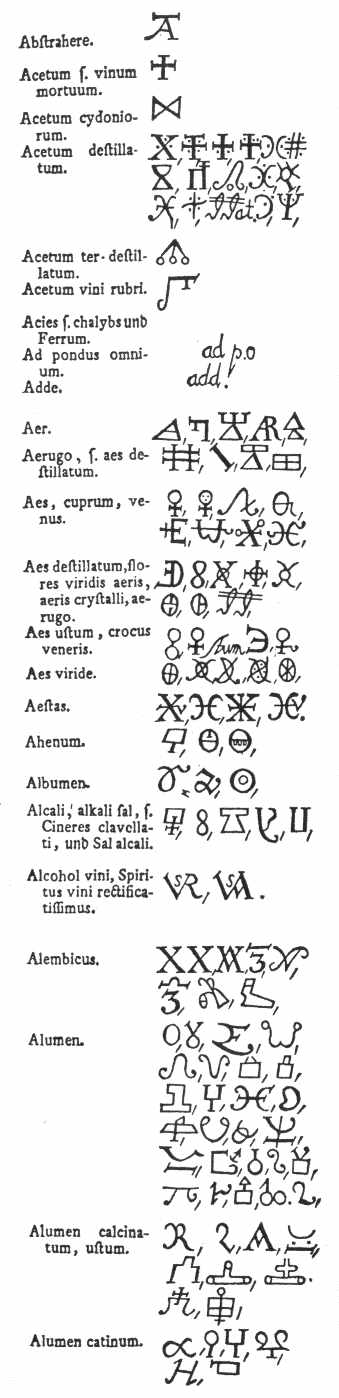 Abſtrahere.
Acetum ſ. vinum
mortuum.
Acetum cydonio-
rum.
Acetum deſtilla-
tum.
Acetum ter-deſtil-
latum.
Acetum vini rubri.
Acies ſ. chalybs und
Ferrum.
Ad pondus omni-
um.
ad p.o
Adde.
add.
Aer.
Aerugo, ſ. aes de-
ſtillatum.
Aes, cuprum, ve-
nus.
Aes deſtillatum, flo-
res viridis aeris,
aeris cryſtalli, ae-
rugo.
Aes uſtum, crocus
veneris.
Aes viride.
Aeſtas.
Ahenum.
Albumen.
Alcali, alkali ſal, ſ.
Cineres clavella-
ti, und Sal alcali.
Alcohol vini, Spiri-
tus vini rectifica-
tiſſimus.
Alembicus.
Alumen.
Alumen calcina-
tum, uſtum.
Alumen catinum.